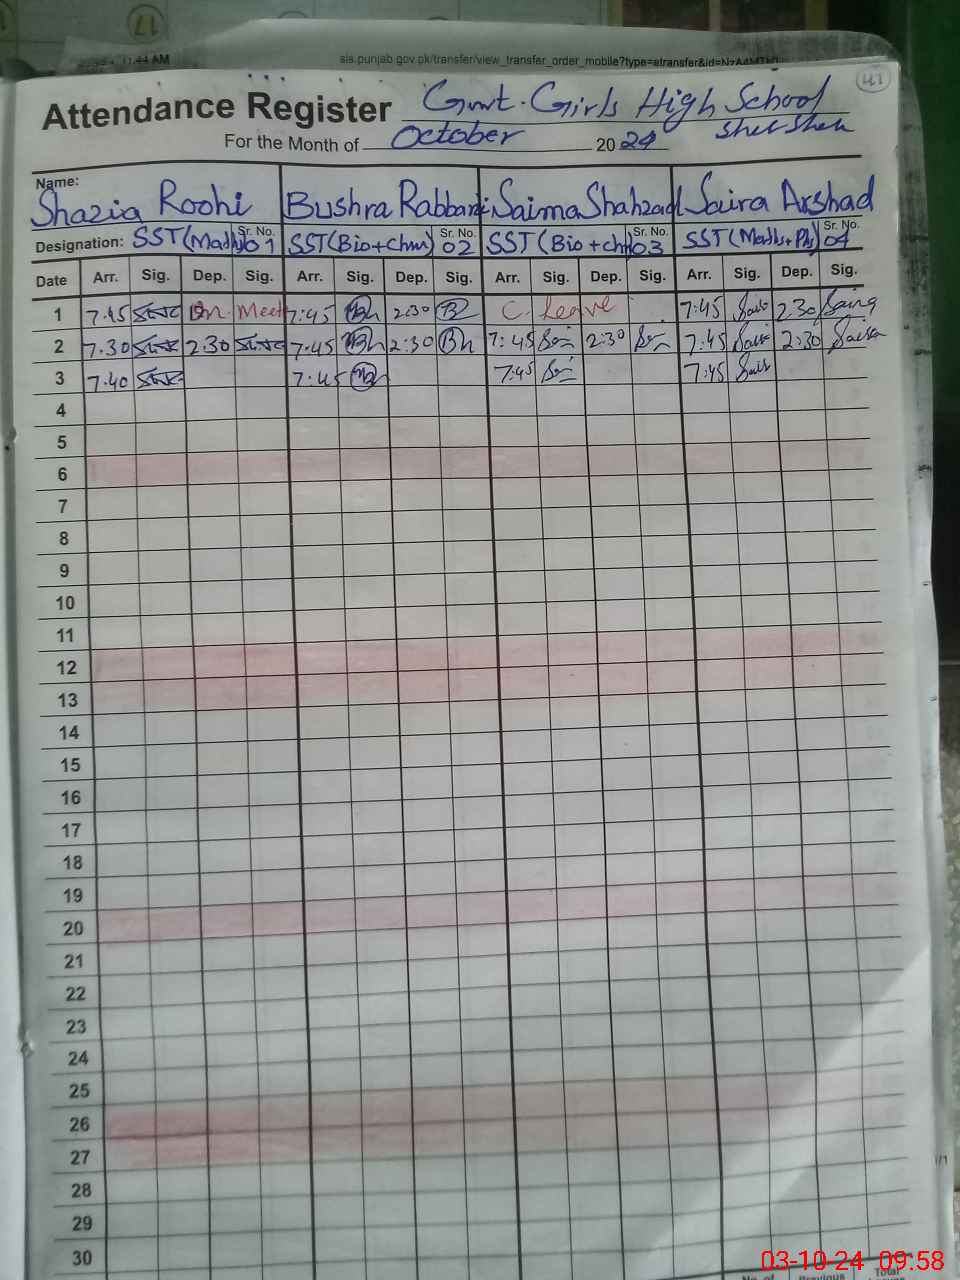 17
11:44 AM sis.punjab.gov.pk/transfer/view_transfer_order_mobile?type=etransfer&id=
41
Attendance Register Gmt. Girls High School
For the Month of October 2024
Name:
Shazia Roohi Bushra Rabbani Saima Shahzad Saira Arshad
Designation: SST(Maths) Sr. No. 01 SST(Bio+chm) Sr. No. 02 SST (Bio+chm) Sr. No. 03 SST (Maths+Ph) Sr. No. 04
Date Arr. Sig. Dep. Sig. Arr. Sig. Dep. Sig. Arr. Sig. Dep. Sig. Arr. Sig. Dep. Sig.
1 7.45 Meet 7:45 2:30 C. Leave 7:45 2:30
2 7.30 2:30 7:45 2:30 7:45 2:30 7:45 2:30
3 7:40 7:45 7:45 7:45
4
5
6
7
8
9
10
11
12
13
14
15
16
17
18
19
20
21
22
23
24
25
26
27
28
29
30
No. of Previous Total
03-10-24 09:58